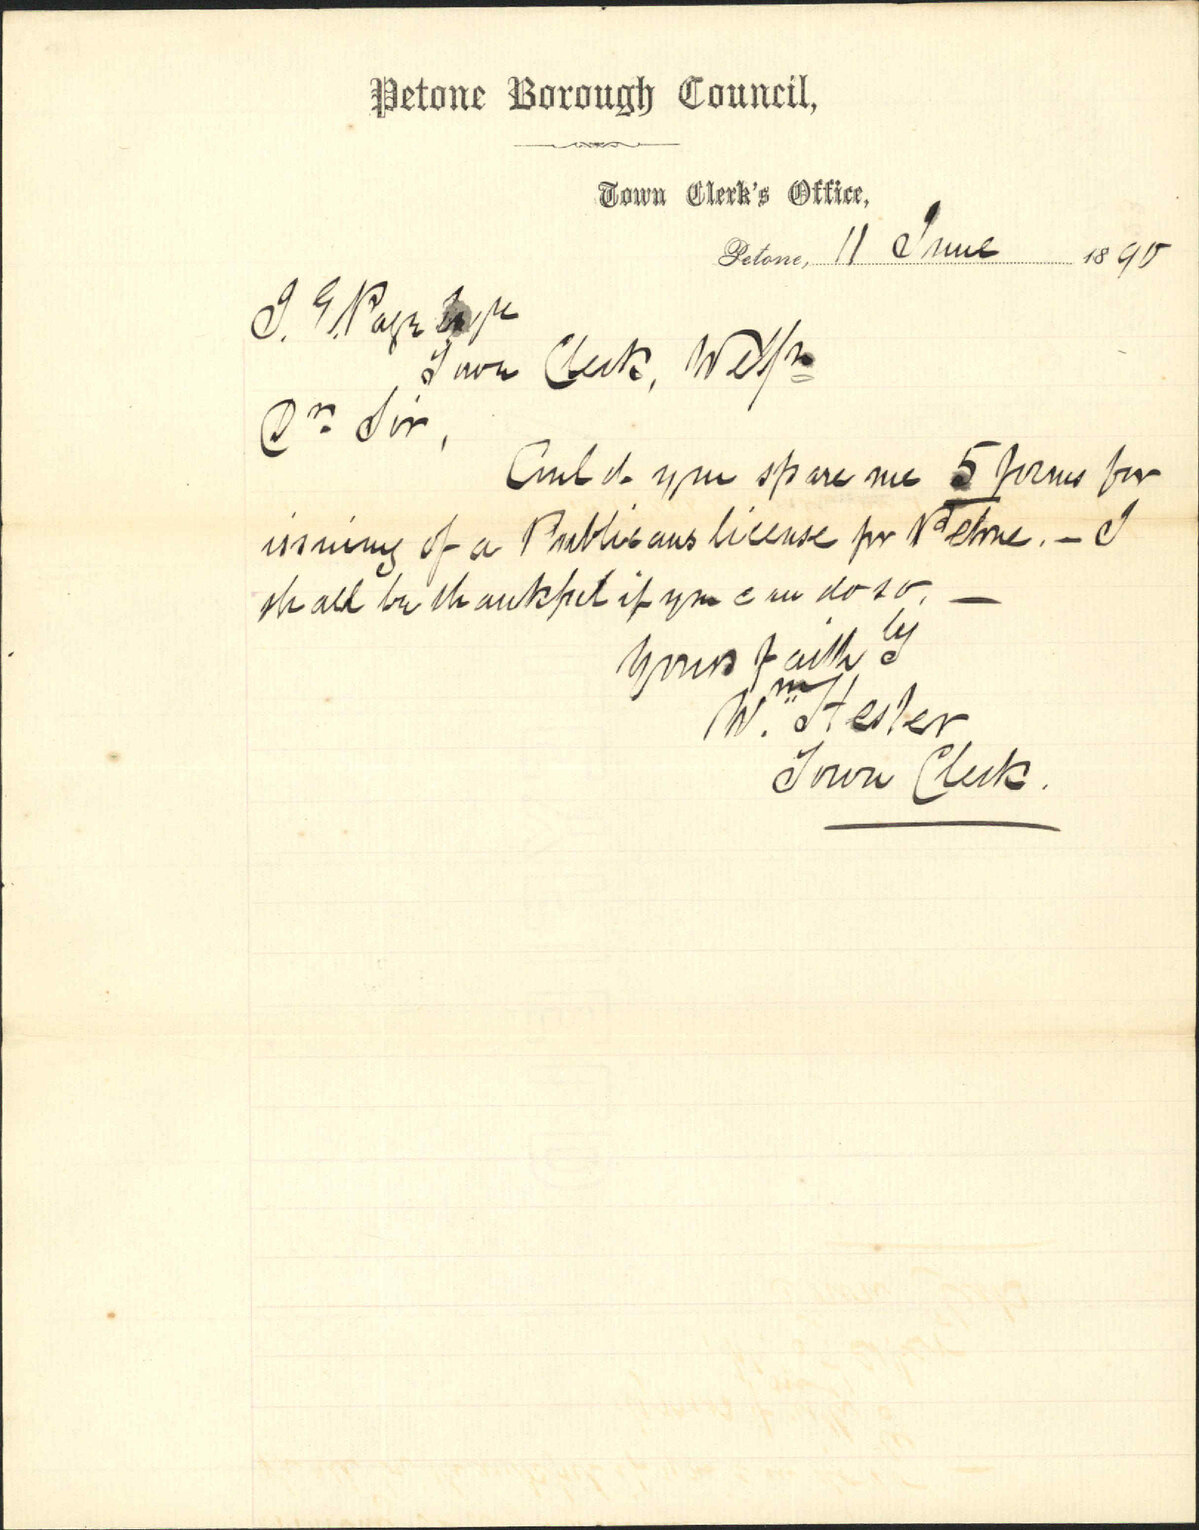 Petone Borough Council,
Town Clerk's Office,
Petone, 11 June 1890
J. G. Page Esqre
Town Clerk, Wellgtn
Dr. Sir,
Could you spare me 5 forms for
issuing of a Publicans license for Petone. — I
shall be thankful if you can do so. —
Yours faithly
Wm. Hester
Town Clerk.